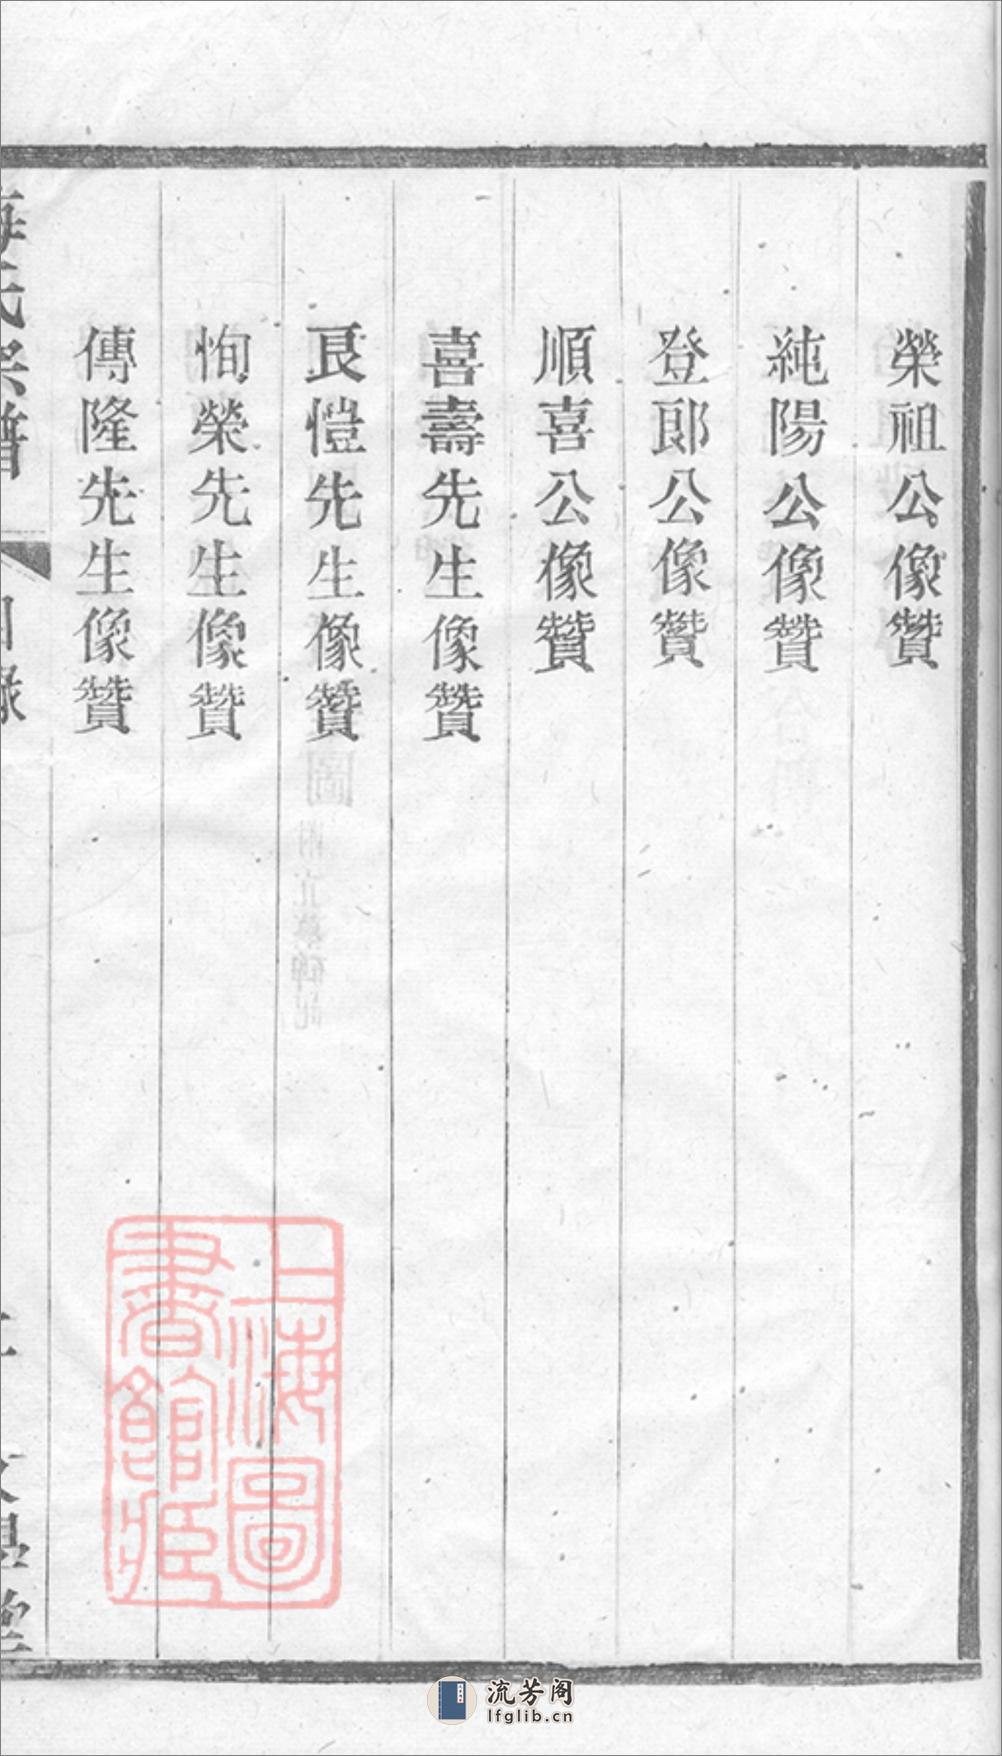 榮祖公像贊
純陽公像贊
登郎公像贊
順喜公像贊
喜壽先生像贊
良愷先生像贊
恂榮先生像贊
傳隆先生像贊
氏宗譜
目錄
上海圖書館藏
流芳阁
lfglib.cn